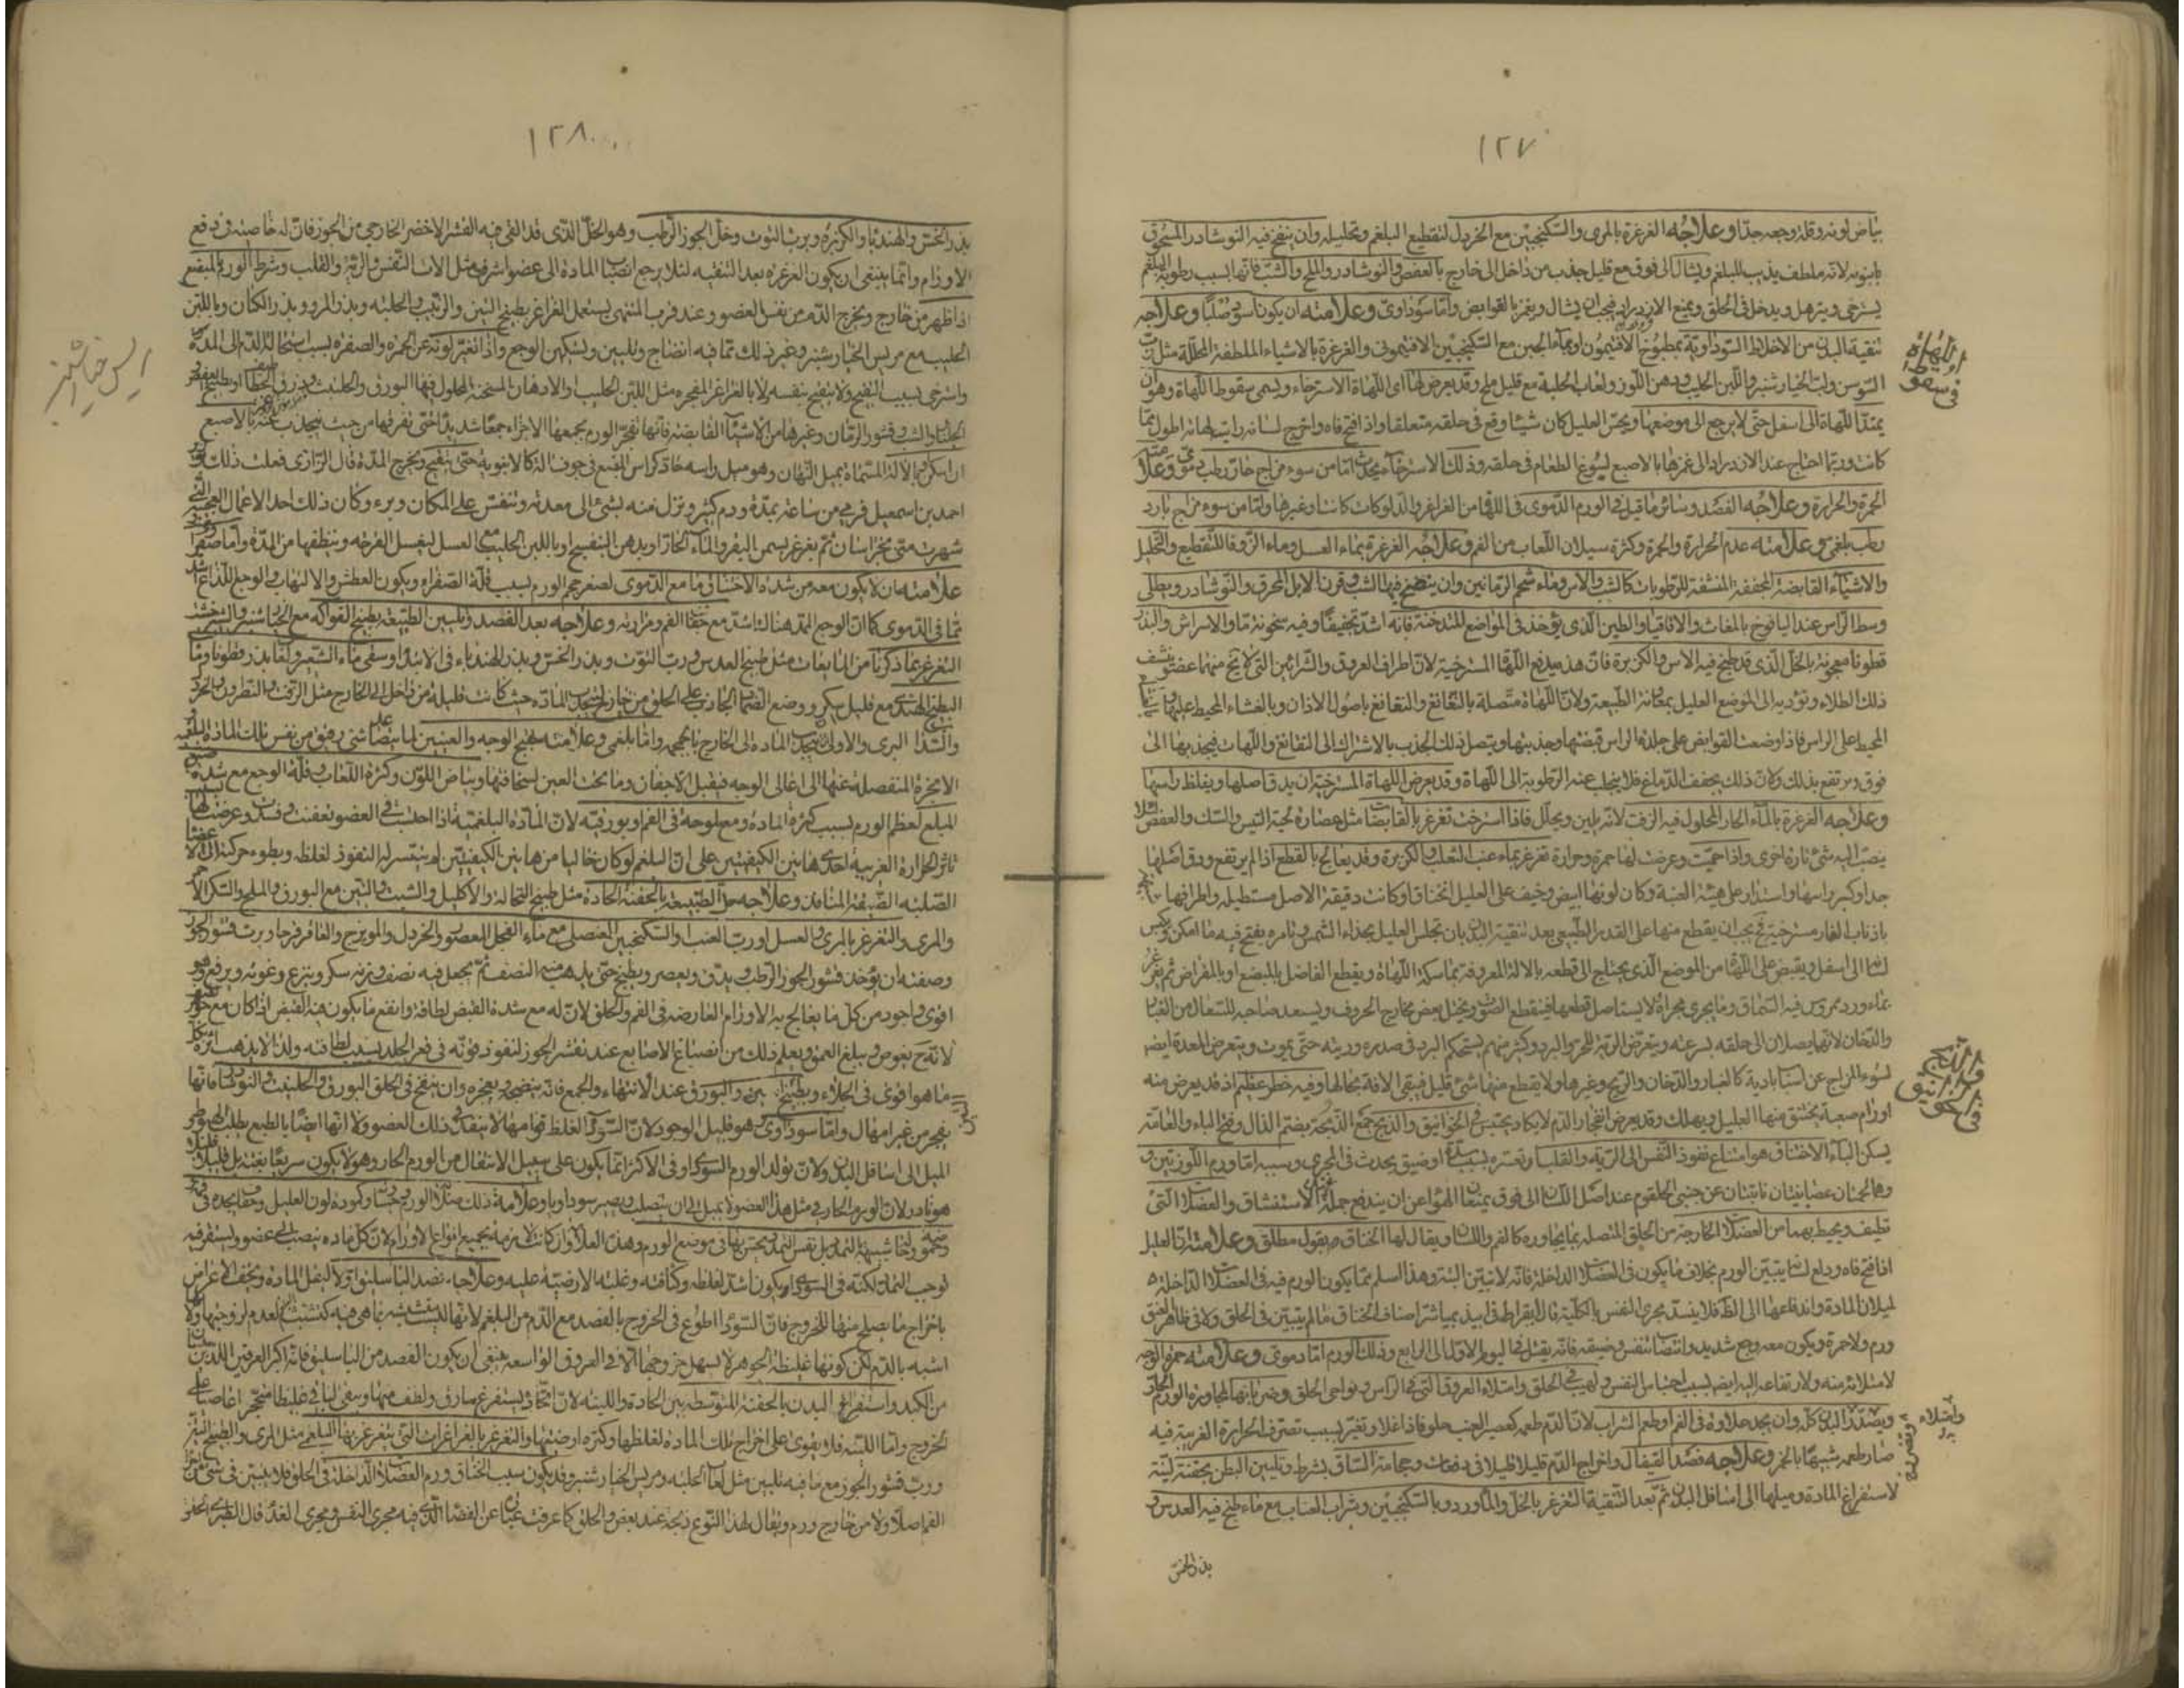 ١٢٧
بياض لونه وقلة وجعه جدا وعلاجه الغرغرة بالمرى والسكنجبين مع الخردل لتقطيع البلغم وتحليله وان ينفخ فيه النوشادر المسحوق
بانبوبه لانه ملطف يذيب للبلغم ويشال الى فوق مع قليل جذب من داخل الى خارج بالعفص والنوشادر والملح والشب فانها بسبب رطوبة البلغم
يسترخى ويترهل ويدخل فى الحلق ويمنع الازدراد فيجب ان يشال ويغمز بالقوابض واما سوداوى وعلامته ان يكون صلبا وعلاجه
تنقية البدن من الاخلاط السوداوية بمطبوخ الافتيمون او بماء الجبن مع السكنجبين الافتيمونى والغرغرة بالاشياء الملطفة المحللة مثل
السوسن ولب الخيارشنبر واللبن الحليب ودهن اللوز ولعاب الحلبة مع قليل ملح وقد يعرض لها اى اللهاة الاسترخاء ويسمى سقوط اللهاة وهو ان
يمتد اللهاة الى اسفل حتى لا يرجع الى موضعها ويحس العليل كان شيئا وقع فى حلقه متعلقا واذا فتح فاه واخرج لسانه رايت لهاته اطول مما
كانت وربما احتاج عند الازدراد الى غمزها بالاصبع ليسوغ الطعام فى حلقه وذلك الاسترخاء يحدث اما من سوء مزاج حار رطب دموى
الحمرة والحرارة وعلاجه الفصد وسائر ما قيل فى الورم الدموى فى اللهاة من الغراغر والدلوكات كانت وغيرها واما من سوء مزاج بارد
رطب بلغمى وعلامته عدم الحرارة والحمرة وكثرة سيلان اللعاب من الفم وعلاجه الغرغرة بماء العسل وماء الزوفا للتقطيع والتحليل
والاشياء القابضة المجففة المنشفة للرطوبات كالشب والاس وماء شحم الرمانين وان ينفخ فيها الشب وقرن الايل المحرق والنوشادر ويطلى
وسط الراس عند اليافوخ بالمغاث والاقاقيا والطين الذى يؤخذ فى المواضع المتدخنة فانه اشد تجفيفا وفيه سخونة ما والاشراس والبذر
قطونا معجونة بالخل الذى قد طبخ فيه الاس والكزبرة فان هذه يدفع اللهاة المسترخية لان اطراف العروق والشرائين التى
ذلك الطلاء وتؤديه الى الموضع العليل بمعاونة الطبيعة ولان اللهاة متصلة بالنغانغ والنغانغ باصول الاذان وبالغشاء المحيط
المحيط على الراس فاذا وضعت القوابض على جلدة الراس قبضتها وجذبتها ويتصل ذلك الجذب بالاشتراك الى النغانغ واللهات فيجذبها الى
فوق ويرتفع بذلك ولان ذلك يجفف الدماغ فلا يتحلب عنه الرطوبة الى اللهاة وقد يعرض اللهاة المسترخية ان يدق اصلها ويغلظ راسها
وعلاجه الغرغرة بالماء الحار المحلول فيه الزفت لانه يلين ويحلل فاذا استرخت تغرغر بالقابضات مثل عصارة لحية التيس والسك والعفص لئلا
ينصب اليه شئ تارة اخرى واذا حميت وعرضت لها حمرة وحرارة تغرغر بماء عنب الثعلب والكزبرة وقد يعالج بالقطع اذا لم يرتفع ودق اصلها
جدا وكبر راسها واستدار على هيئة العنبة وكان لونها ابيض وخيف على العليل الخناق او كانت دقيقة الاصل مستطيلة واطرافها
باذناب الفار مسترخية فيجب ان يقطع منها على القدر الطبيعى بعد تنقية البدن بان تجلس العليل بحذاء الشمس وتامره بفتح فيه ما امكن ويكبس
لسانه الى اسفل ويقبض على اللهاة من الموضع الذى يحتاج الى قطعه بالالة المعروفة بماسكة اللهاة ويقطع الفاضل بالمبضع او بالمقراض ثم يغرغر
بماء ورد ممروس فيه السماق وما يجرى مجراه لا يستاصل قطعها فينقطع الصوت ويختل بعض مخارج الحروف ويستعد صاحبه للسعال من الغبار
والدخان لانهما يصلان الى حلقه بسرعة ويتعرض الرئة للحر والبرد وكثير منهم يستحكم البرد فى صدره وريته حتى يموت ويتعرض المعدة ايضا
لسوء المزاج عن اسباب بادية كالغبار والدخان والريح وغيرها ولا يقطع منها شئ قليل فيبقى الافة بحالها وفيه خطر عظيم اذ قد يعرض منه
اورام صعبة يختنق منها العليل ويهلك وقد يعرض انفجار الدم لا يكاد يحتبس فى الخوانيق والذبح جمع الذبحة بضم الذال وفتح الباء والعامة
يسكن الباء الاختناق هو امتناع نفوذ النفس الى الرية والقلب او تعسره بسبب سدة او ضيق يحدث فى المجرى وسببه اما ورم اللوزتين و
هما لحمتان عصبانيتان ناتئتان عن جنبى الحلقوم عند اصل اللسان الى فوق يمنعان الهواء عن ان يندفع جملة عند الاستنشاق والعضلات التى
تطيف ويحيط بهما من العضلات الخارجة من الحلق المتصلة بما يجاوره كالفم واللسان ويقال لها الخناق بقول مطلق وعلامته ان العليل
اذا فتح فاه ودلع لسانه يتبين الورم بخلاف ما يكون فى العضلات الداخلة فانه لا يتبين البتة وهذا اسلم مما يكون الورم فيه فى العضلات الداخلة
لميلان المادة واندفاعها الى الظاهر فلا ينسد مجرى النفس بالكلية قال ابقراط فى ابيذيميا شر اصناف الخناق ما لم يتبين فى الحلق ولا فى ظاهر العنق
ورم ولا حمرة ويكون معه وجع شديد وانتصاب نفس وضيقه فانه يقتل فى اليوم الاول الى الرابع وذلك الورم اما دموى وعلامته حمرة الوجه
لامتلائه منه ولارتفاعه اليه ايضا بسبب احتباس النفس ولهيب فى الحلق وامتلاء العروق التى فى الراس ونواحى الحلق وضربانها لمجاورة الورم الحار
ويتمدد البدن كله وان يجد حلاوة فى الفم او طعم الشراب لان الدم طعمه كعصير العنب حلو فاذا غلا وتغير بسبب تصرف الحرارة الغريبة فيه
صار طعمه شبيها بالخمر وعلاجه فصد القيفال واخراج الدم قليلا قليلا فى دفعات وحجامة الساق بشرط وتليين البطن بحقنة لينة
لاستفراغ المادة وميلها الى اسافل البدن ثم بعد التنقية التغرغر بالخل والماورد وبالسكنجبين وشراب العناب مع ماء طبخ فيه العدس و
بذر الخس
فى سقوط
اللهاة
فى الخوانيق
والذبح
وامتلاء
١٢٨
بذر الخس والهندبا والكزبرة وبرب التوت وخل الجوز الرطب وهو الخل الذى قد القى فيه القشر الاخضر الخارجى من الجوز فان له خاصية فى دفع
الاورام وانما ينبغى ان يكون الغرغرة بعد التنقية لئلا يرجع انصباب المادة الى عضو اشرف مثل الات التنفس والرية والقلب وشرط الورم بالمبضع
اذا ظهر من خارج ويخرج الدم من نفس العضو وعند قرب المنتهى يستعمل الغراغر بطبيخ التين والزبيب والحلبة وبذر المرو وبذر الكتان وباللبن
الحليب مع مريس الخيارشنبر وغير ذلك مما فيه انضاج وتليين وتسكين الوجع واذا تغير لونه عن الحمرة والصفرة بسبب استحالة الدم الى المدة
واسترخى بسبب النضج ولا ينفتح بنفسه ولا بالغراغر المفجرة مثل اللبن الحليب والادهان المسخنة المحلول فيها البورق والحلتيت وذرق الخطاف
وقشور الرمان وغيرها من الاشياء القابضة فانها تفجر الورم بجمعها الاجزاء جمعا شديدا حتى تفرقها من حيث ينجذب عنه بالاصبع
ان امكن او بالالة المسماة بميل اللهاة وهو ميل راسه حاد كراس المبضع فى جوف الة كالانبوبة حتى ينفتح ويخرج المدة قال الرازى فعلت ذلك
احمد بن اسمعيل فرمى من ساعته بمدة ودم كثير ونزل منه شئ الى معدته وتنفس على المكان وبرء وكان ذلك احد الاعمال العجيبة التى
شهرت منى بخراسان ثم يغرغر بسمن البقر والماء الحار او بدهن البنفسج او باللبن الحليب مع العسل ليغسل القرحة وينظفها من المدة واما صفراوى
علامته ان لا يكون معه من شدة الاختناق ما مع الدموى لصغر حجم الورم بسبب قلة الصفراء ويكون العطش والالتهاب والوجع اللذاع اشد
مما فى الدموى كما ان الوجع التمددى هناك اشد مع جفاف الفم ومرارته وعلاجه بعد الفصد وتليين الطبيعة بطبيخ الفواكه مع الخيارشنبر والشيرخشت
التغرغر بما ذكرنا من المايعات مثل طبيخ العدس ورب التوت وبذر الخس وبذر الهندباء فى الابتداء وسقى ماء الشعير ولعاب بذر قطونا وماء
البطيخ الهندى مع قليل سكر ووضع الضماد الجاذب على الحلق من خارج لينجذب المادة حيث كانت قليلة من داخل الى الخارج مثل الزفت والنطرون والخردل
والسذاب البرى والاولى ان ينجذب المادة الى الخارج بالمحجمة واما بلغمى وعلامته تهبج الوجه والعينين لما ينصب اليها شئ رقيق من نفس تلك المادة البلغمية
الابخرة المنفصلة عنها الى اعالى الوجه فيقبل الاجفان وما تحت العين لسخافتها وبياض اللون وكثرة اللعاب وقلة الوجع مع شدة
المبلع لعظم الورم بسبب كثرة المادة ومع ملوحة فى الفم او بورقية لان المادة البلغمية اذا احتبست فى العضو تعفنت وفسدت وعرضت لها
تاثير الحرارة الغريبة احدى هاتين الكيفيتين على ان البلغم لو كان خاليا من هاتين الكيفيتين لم يتيسر له النفوذ لغلظه وبطوء حركته الى الاعضاء
الصلبة الضيقة المنافذ وعلاجه حل الطبيعة بالحقنة الحادة مثل طبيخ النخالة والاكليل والشبت والتين مع البورق والملح والسكر الاحمر
والمرى والتغرغر بالمرى والعسل او رب العنب او السكنجبين العنصلى مع ماء الفجل المعصور والخردل والمويزج والعاقرقرحا وبرب قشور الجوز
وصفته ان يؤخذ قشور الجوز الرطب ويدق ويعصر ويطبخ حتى يذهب منه النصف ثم يجعل فيه نصف وزنه سكر وينزع رغوته ويرفع وهو
اقوى واجود من كل ما يعالج به الاورام العارضة فى الفم والحلق لان له مع شدة القبض لطافة وانفع ما يكون هذا القبض اذا كان مع جوهر
لانه ح يغوص ويبلغ العمق ويعلم ذلك من انصباغ الاصابع عند تقشر الجوز لنفوذ قوته فى قعر الجلد بسبب لطافته ولذا لا يذهب اثره
ما هو اقوى فى الجلاء وبطبيخ التين والبورق عند الانتهاء والجمع فانه ينضجه ويفجره وان ينفخ فى الحلق البورق والحلتيت والنوشادر فانها
يفجر من غير امهال واما سوداوى وهو قليل الوجود لان السوداء لغلظ قوامها لا ينفذ فى ذلك العضو ولانها ايضا بالطبع يطلب
الميل الى اسافل البدن ولان تولد الورم السوداوى فى الاكثر انما يكون على سبيل الانتقال من الورم الحار وهو لا يكون سريعا بغتة بل قليلا قليلا
هو نادر لان الورم الحار فى مثل هذا العضو لا يمهل الى ان يتصلب ويصير سوداويا وعلامة ذلك صلابة الورم جسا وكمودة لون العليل وحموضة يجده فى
لوجب التمدد لكنه فى السوداوى يكون اشد لغلظه وكثافته وغلبة الارضية عليه وعلاجه فصد الباسليق اولا ليقل المادة ويخف الاعراض
باخراج ما يصلح منها للخروج فان السوداء اطوع فى الخروج بالفصد مع الدم من البلغم لانها ليست متشبثة بما هى فيه كتشبث البلغم لعدم لزوجتها ولانها
اشبه بالدم لكن كونها غليظة الجوهر لا يسهل خروجها الا فى العروق الواسعة فينبغى ان يكون الفصد من الباسليق فانه اكبر العرقين اللذين
من الكبد واستفراغ البدن بالحقنة المتوسطة بين الحادة واللينة لان الحادة يستفرغ ما رق ولطف منها ويبقى الباقى غليظا متحجرا عاصيا على
الخروج واما اللينة فلا يقوى على اخراج تلك المادة لغلظها وكثرة ارضيتها والتغرغر بالغراغرات التى يتغرغر بها البلغمى مثل المرى والطبيخ التين
ورب قشور الجوز مع ما فيه تليين مثل لعاب الحلبة ومريس الخيارشنبر وقد يكون سبب الخناق ورم العضلات الداخلة فى الحلق فلا يتبين فى شئ من
الفم اصلا ولا من خارج ورم ويقال لهذا النوع ذبحة عند بعض والحلق كما عرفت عبارة عن الفضاء الذى فيه مجرى النفس ومجرى الغذاء قال الطبرى الحلق